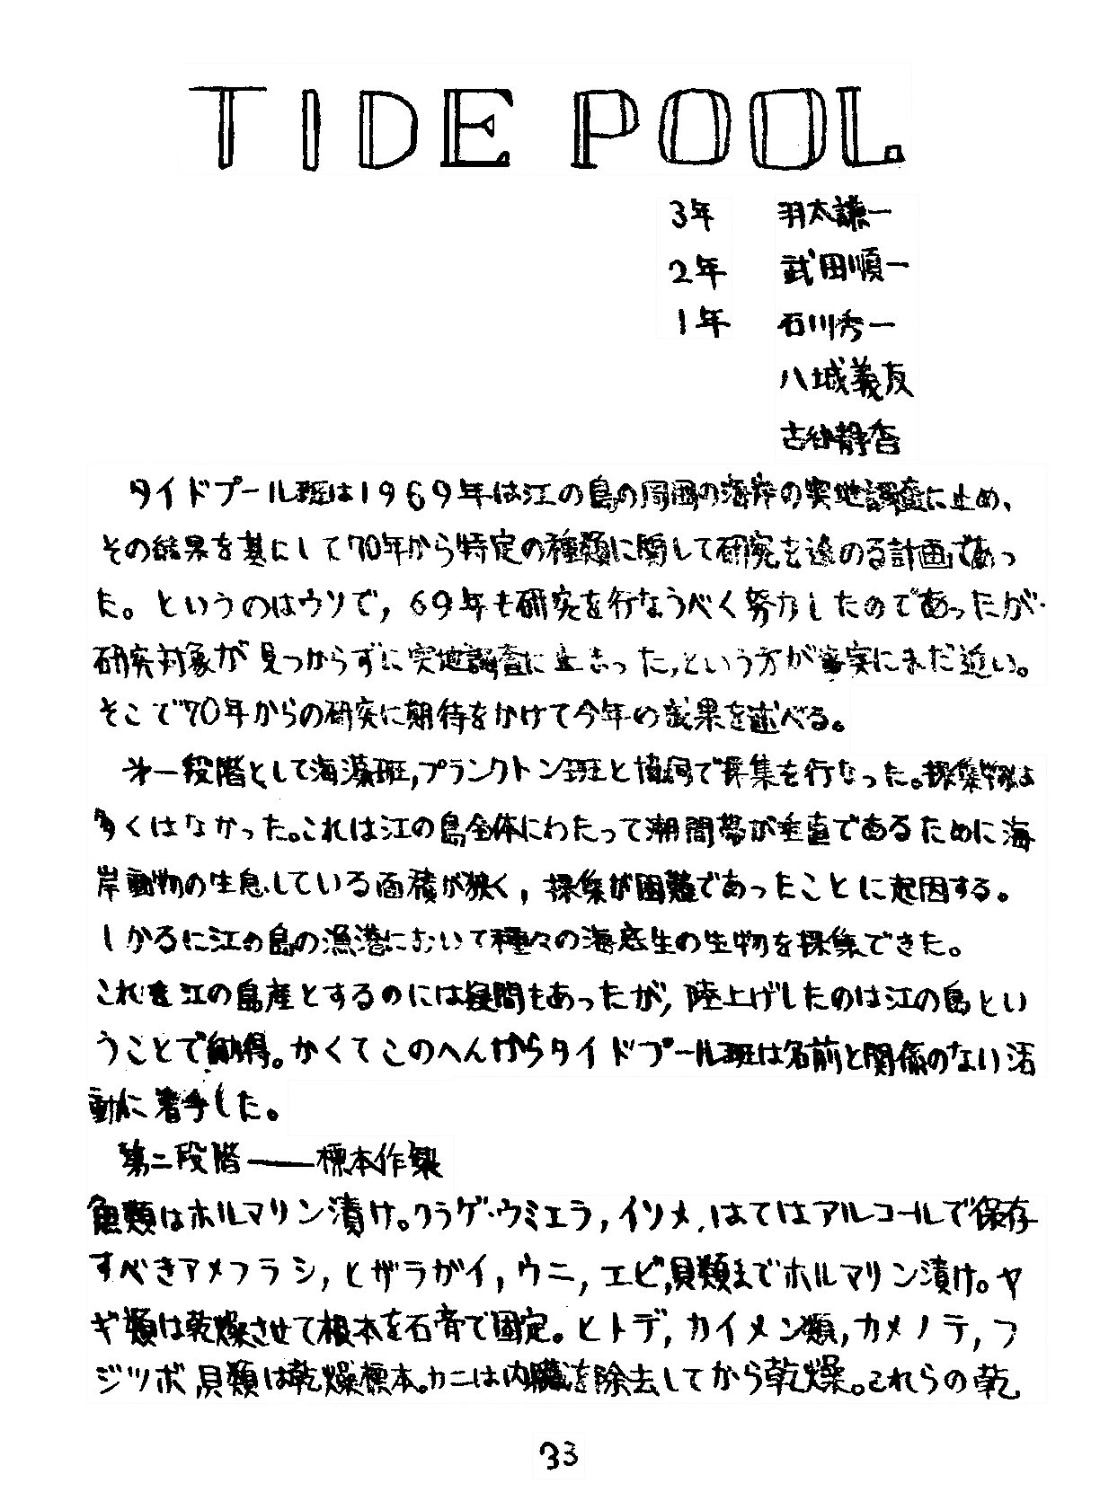 TIDE POOL
3年 羽太謙一
2年 武田順一
1年 石川秀一
八城義友
古 静香
タイドプール班は1969年は江の島の周囲の海岸の実地調査に止め、
その結果を基にして70年から特定の種類に関して研究を進める計画であっ
た。というのはウソで,69年も研究を行なうべく努力したのであったが
研究対象が見つからずに実地調査に止まった,という方が事実にまだ近い。
そこで70年からの研究に期待をかけて今年の成果を述べる。
才一段階として海藻班,プランクトン班と協同で採集を行なった。採集物は
多くはなかった。これは江の島全体にわたって潮間帯が垂直であるために海
岸動物の生息している面積が狭く,採集が困難であったことに起因する。
しかるに江の島の漁港において種々の海底生の生物を採集できた。
これを江の島産とするのには疑問もあったが,陸上げしたのは江の島とい
うことで納得。かくてこのへんからタイドプール班は名前と関係のない活
動に着手した。
第二段階――標本作製
魚類はホルマリン漬け。クラゲ・ウミエラ,イソメ,はてはアルコールで保存
すべきアメフラシ,ヒザラガイ,ウニ,エビ,貝類までホルマリン漬け。ヤ
ギ類は乾燥させて根本を石膏で固定。ヒトデ,カイメン類,カメノテ,フ
ジツボ,貝類は乾燥標本。カニは内臓を除去してから乾燥。これらの乾
33